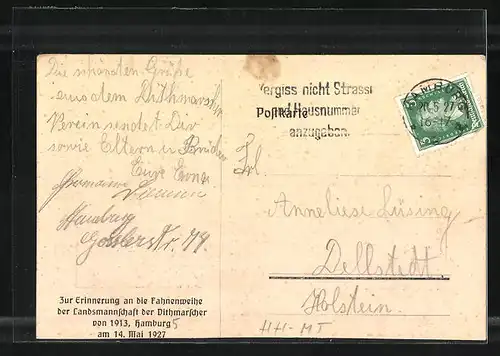 Die schönsten Grüße
aus dem Dithmarscher
Verein sendet Dir
sowie Eltern u. Brüder
Eure Erna
Hermann
Hamburg
Gosslerstr. 44
Zur Erinnerung an die Fahnenweihe
der Landsmannschaft der Dithmarscher
von 1913, Hamburg 5
am 14. Mai 1927
Vergiss nicht Strasse
und Hausnummer
anzugeben.
Postkarte
HAMBURG
20.5.27
5
5
Frl.
Anneliese Lüsing
Dellstedt
Holstein.
HH-MT